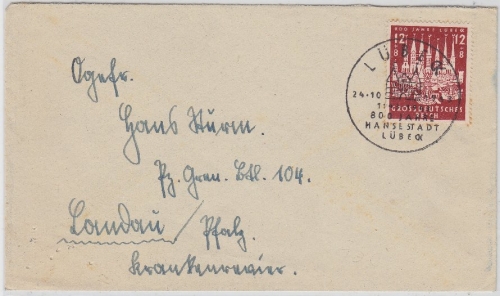 Ogefr.
Hans Sturm.
Pz. Gren. Btl. 104.
Landau / Pfalz.
Krankenrevier.
800 JAHRE LÜBECK
12 12
GROSSDEUTSCHES
REICH
LÜBECK
24.10
800 JAHRE
HANSESTADT
LÜBECK